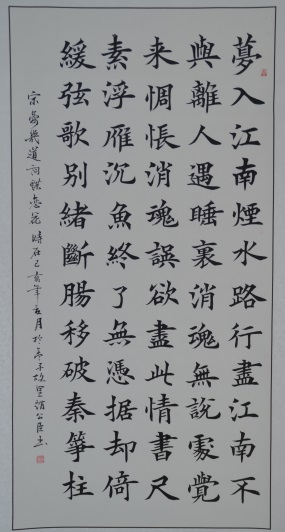 夢入江南煙水路行盡江南不
與離人遇睡裏消魂無說處覺
来惆悵消魂誤欲盡此情書尺
素浮雁沉魚終了無憑据却倚
緩弦歌别緒斷腸移破秦箏柱
宋晏幾道詞蝶恋花時在己亥年月於故里公臣書